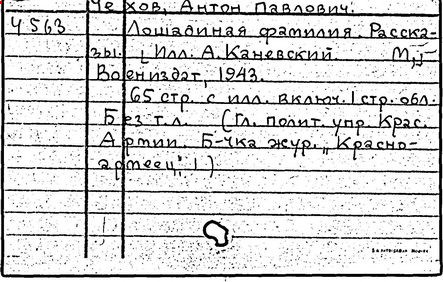 Чехов, Антон Павлович.
Ч 563 Лошадиная фамилия. Расска-
зы. [Илл. А. Каневский. М.,]
Воениздат, 1943.
65 стр. с илл. включ. 1 стр. обл.
Без т.л. (Гл. полит. упр. Крас.
Армии. Б-чка жур. „Красно-
армеец", 1)